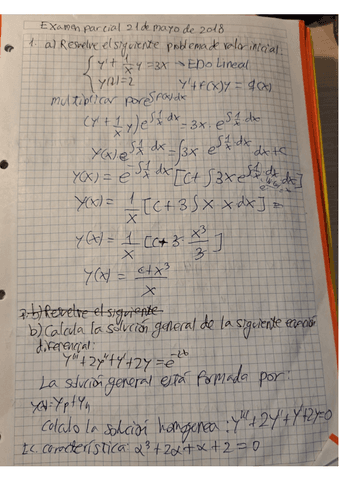 Examen parcial 21 de mayo de 2018
1. a) Resuelve el siguiente problema de valor inicial:
{ y' + 1/x y = 3x → EDO Lineal
y(1) = 2   y' + f(x)y = g(x)
multiplicar por e^∫f(x)dx
(y' + 1/x y) e^∫1/x dx = 3x · e^∫1/x dx
y(x) e^∫1/x dx = ∫3x e^∫1/x dx dx + c
y(x) = e^-∫1/x dx [c + ∫3x e^∫1/x dx dx]
y(x) = 1/x [c + 3∫x · x dx] =
y(x) = 1/x [c + 3 · x³/3]
y(x) = c + x³ / x
b) Resuelve el siguiente
b) Calcula la solución general de la siguiente ecuación
diferencial:
y''' + 2y'' + y' + 2y = e^-2x
La solución general está formada por:
y(x) = yp + yh
calculo la solución homogenea: y''' + 2y'' + y' + 2y = 0
Ec. característica: α³ + 2α + α + 2 = 0